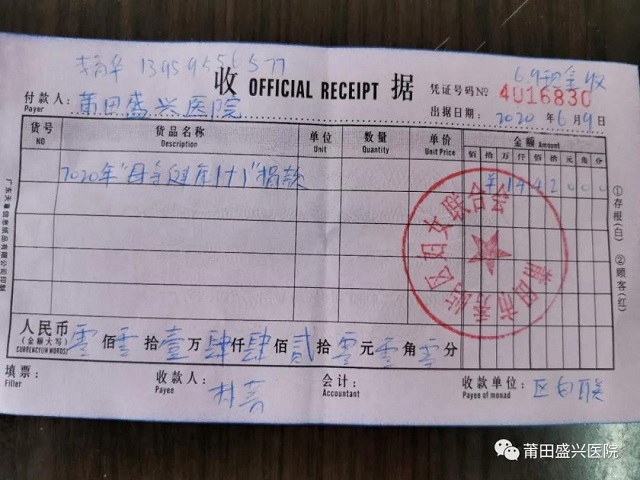 13959556577
6.9现金收
收 OFFICIAL RECEIPT 据
凭证号码 № 4U16830
付款人: 莆田盛兴医院
Payer
出据日期: 2020年6月9日
货号 货品名称 单位 数量 单价 金额 Amount
NO Description Unit Quantity Unit Price 佰 拾 万 仟 佰 拾 元 角 分
2020年"母亲健康1+1"捐款 ¥14420000
莆田市秀屿区妇女联合会
①存根(白) ②顾客(红)
广东天章信息纸品有限公司印制
人民币 零佰零拾壹万肆仟肆佰贰拾零元零角零分
(金额大写)
CURRENCY(IN WORDS)
填票: 收款人: 会计: 收款单位: 区妇联
Filler Payee Accountant Payee of monad
莆田盛兴医院